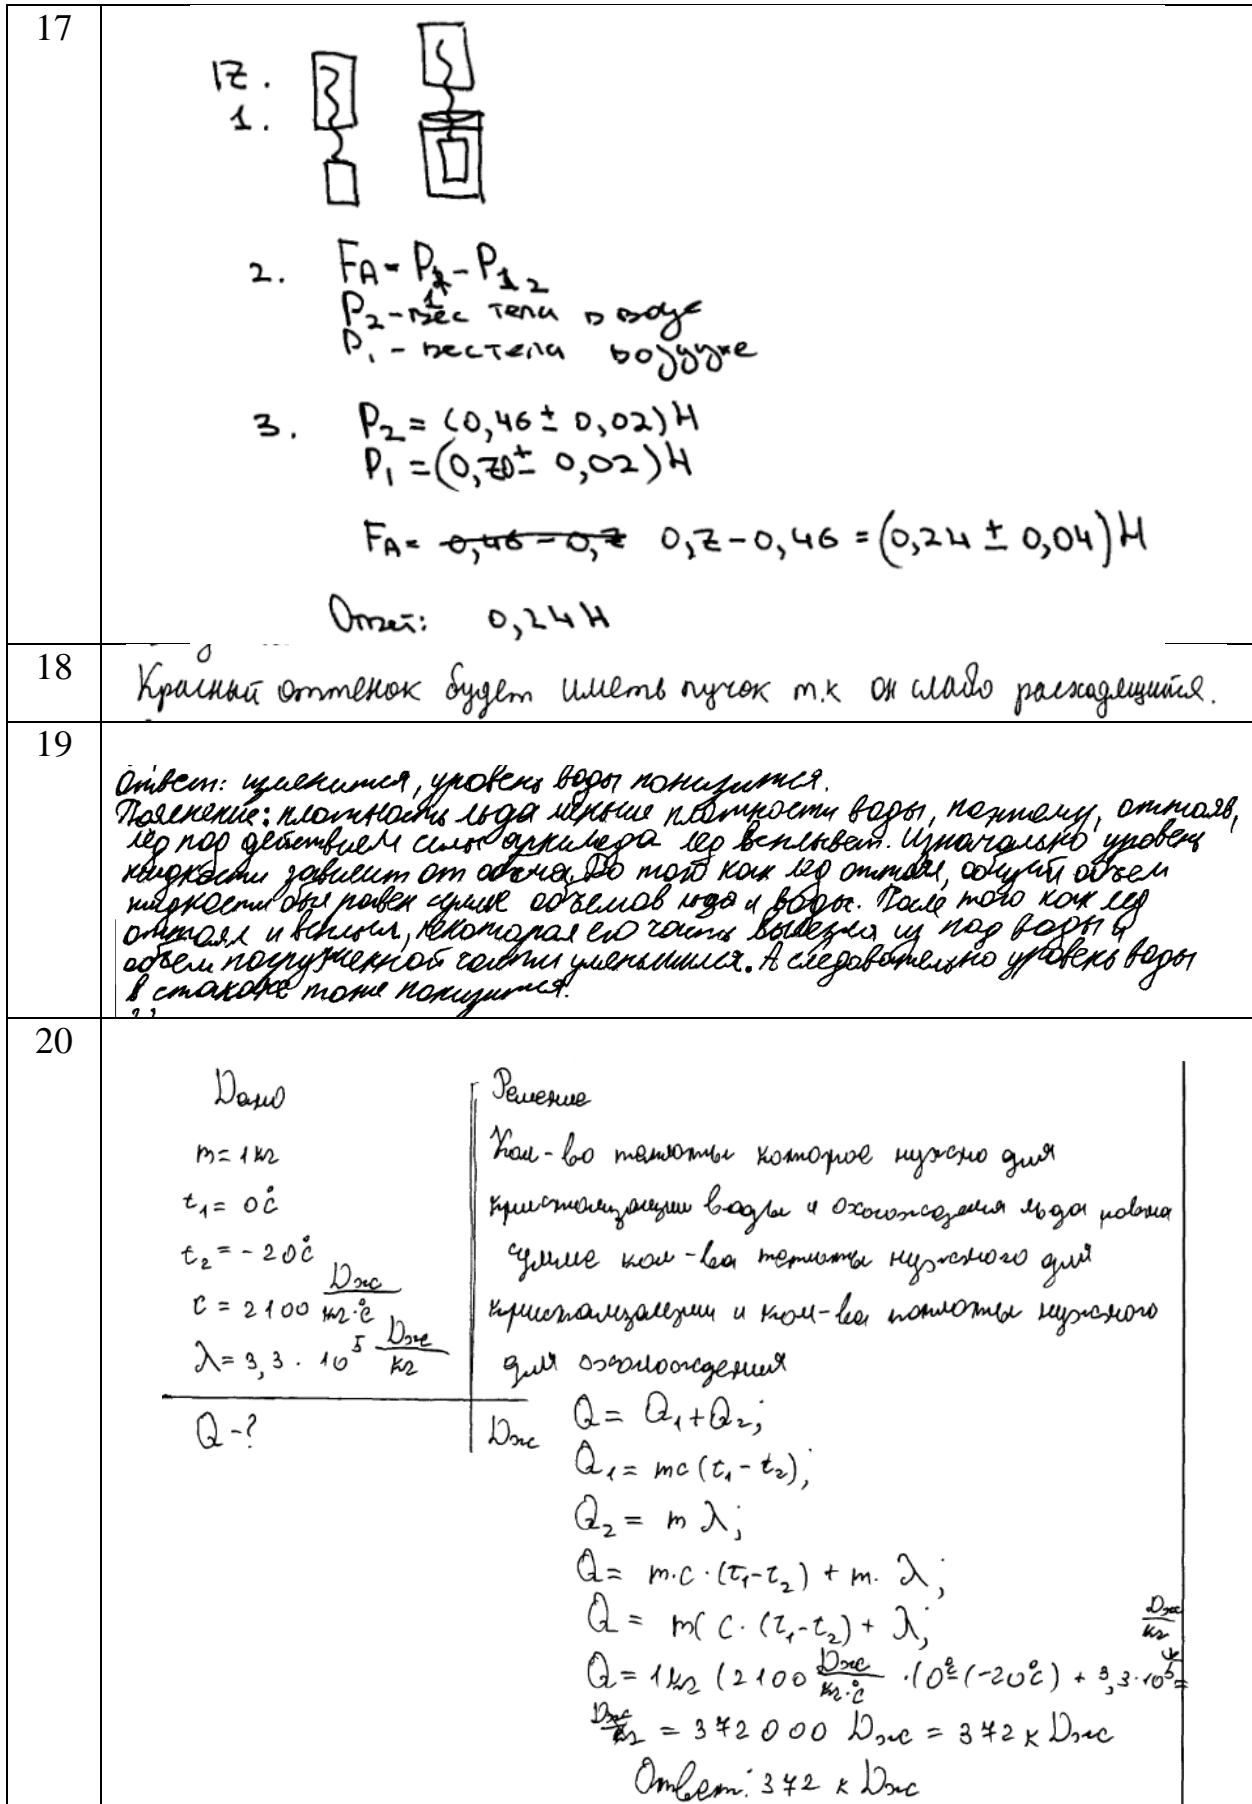 17
17.
1.
2. FA = P1 - P2
P2 - вес тела в воде
P1 - вес тела воздухе
3. P2 = (0,46 ± 0,02) Н
P1 = (0,70 ± 0,02) Н
FA = 0,46 - 0,7 0,7 - 0,46 = (0,24 ± 0,04) Н
Ответ: 0,24 Н
18
Красный оттенок будет иметь пучок т.к он слабо расходящийся.
19
Ответ: изменится, уровень воды понизится.
Пояснение: плотность льда меньше плотности воды, поэтому, оттаяв,
лёд под действием силы архимеда лёд всплывет. Изначально уровень
жидкости зависит от объема. До того как лёд оттаял, общий объем
жидкости был равен сумме объемов льда и воды. После того как лед
оттаял и всплыл, некоторая его часть вылезла из под воды и
объем погруженной части уменьшился. А следовательно уровень воды
в стакане тоже понизится.
20
Дано Решение
m = 1 кг Кол-во теплоты которое нужно для
t₁ = 0°C кристализации воды и охлождения льда ровна
t₂ = -20°C сумме кол-ва теплоты нужного для
c = 2100 Дж/кг·°C кристализации и кол-ва теплоты нужного
λ = 3,3 · 10⁵ Дж/кг для охлождения
Q - ? Дж Q = Q₁ + Q₂;
Q₁ = mc(t₁ - t₂);
Q₂ = mλ;
Q = m·c·(t₁-t₂) + m·λ;
Q = m(c·(t₁-t₂) + λ;
Q = 1 кг (2100 Дж/кг·°C · (0°-(-20°C) + 3,3·10⁵ Дж/кг =
Дж/кг = 372000 Дж = 372 кДж
Ответ: 372 кДж